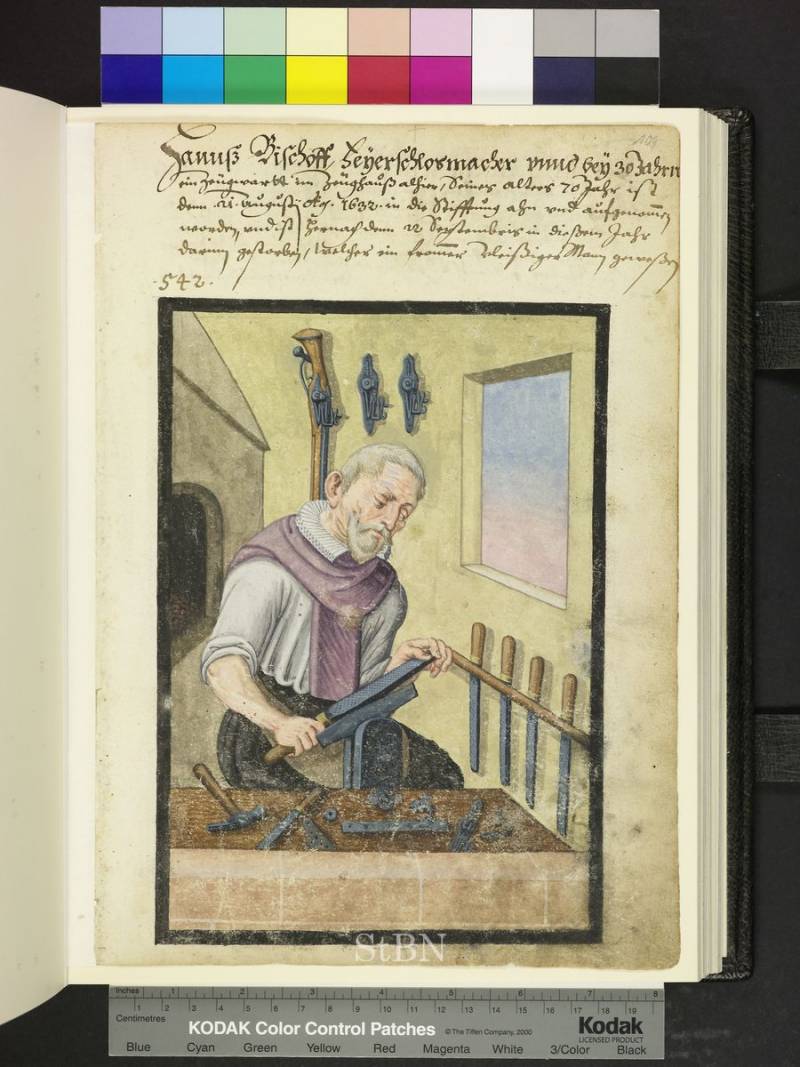 Hannß Bischoff Feyerschlosmacher vnnd bey 30 Jahrn
ein Zeugwartt im Zeüghauß alhier, Seines alters 70 Jahr ist
denn 21. Augustj Aõ. 1632. in die Stifftung ahn vnd auffgenom̄en
worden, vnd ist hernach denn 12 Septembris in dießem Jahr
darinn gestorben, welcher ein from̄er vleißiger Mann geweßen
542.
StBN
Inches 1 2 3 4 5 6 7 8
Centimetres 1 2 3 4 5 6 7 8 9 10 11 12 13 14 15 16 17 18 19
KODAK Color Control Patches © The Tiffen Company, 2000 Kodak
LICENSED PRODUCT
Blue Cyan Green Yellow Red Magenta White 3/Color Black